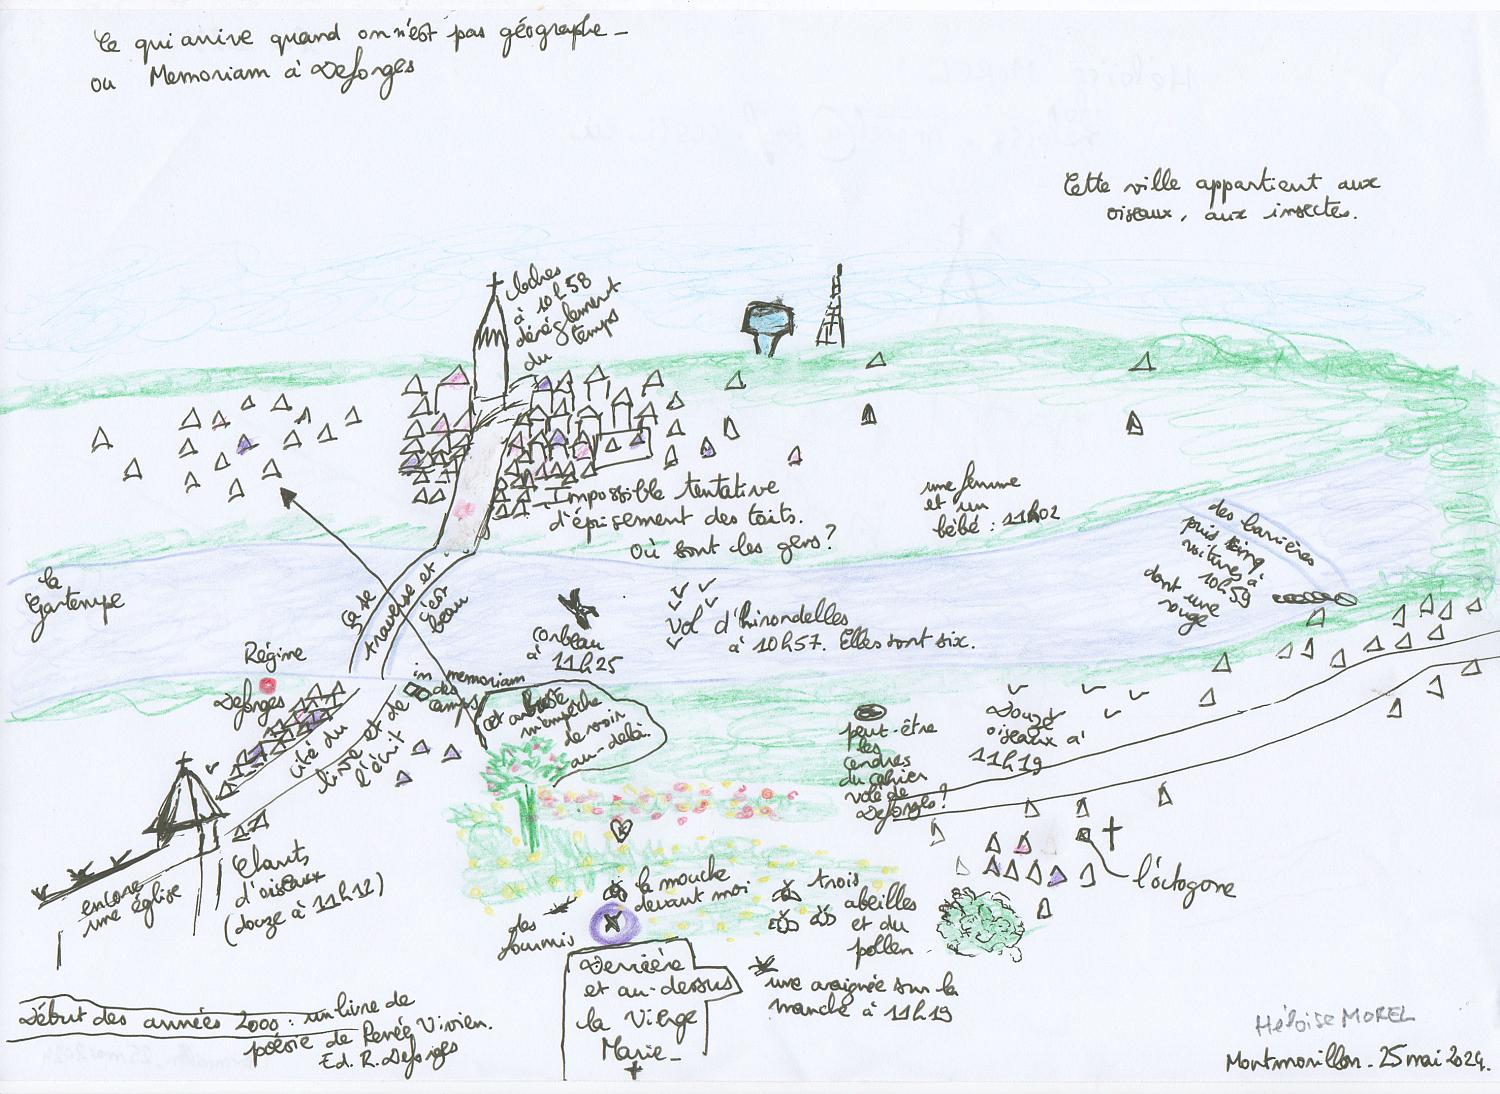 Ce qui arrive quand on n'est pas géographe -
ou Memoriam à Deforges
Cette ville appartient aux
oiseaux, aux insectes.
cloches
à 10h58
dérèglement
du temps
Impossible tentative
d'épuisement des toits.
Où sont les gens?
une femme
et un
bébé : 11h02
des barrières
puis cinq
voitures à
10h59
dont une
rouge
la
Gartempe
ça se
traverse et
c'est
beau
corbeau
à 11h25
Vol d'hirondelles
à 10h57. Elles sont six.
Régine
Deforges
in memoriam
des
camps
cet arbuste
m'empêche
de voir
au-delà.
cité du
livre et de
l'écrit
peut-être
les
cendres
du cahier
volé de
Deforges?
Douze
oiseaux à
11h19
encore
une église
Chants
d'oiseaux
(douze à 11h12)
la mouche
devant moi
des
fourmis
trois
abeilles
et du
pollen
l'octogone
Derrière
et au-dessus
la Vierge
Marie -
une araignée sur la
manche à 11h19
Début des années 2000 : un livre de
poésie de Renée Vivien.
Ed. R. Deforges
Héloïse MOREL
Montmorillon. 25 mai 2024.